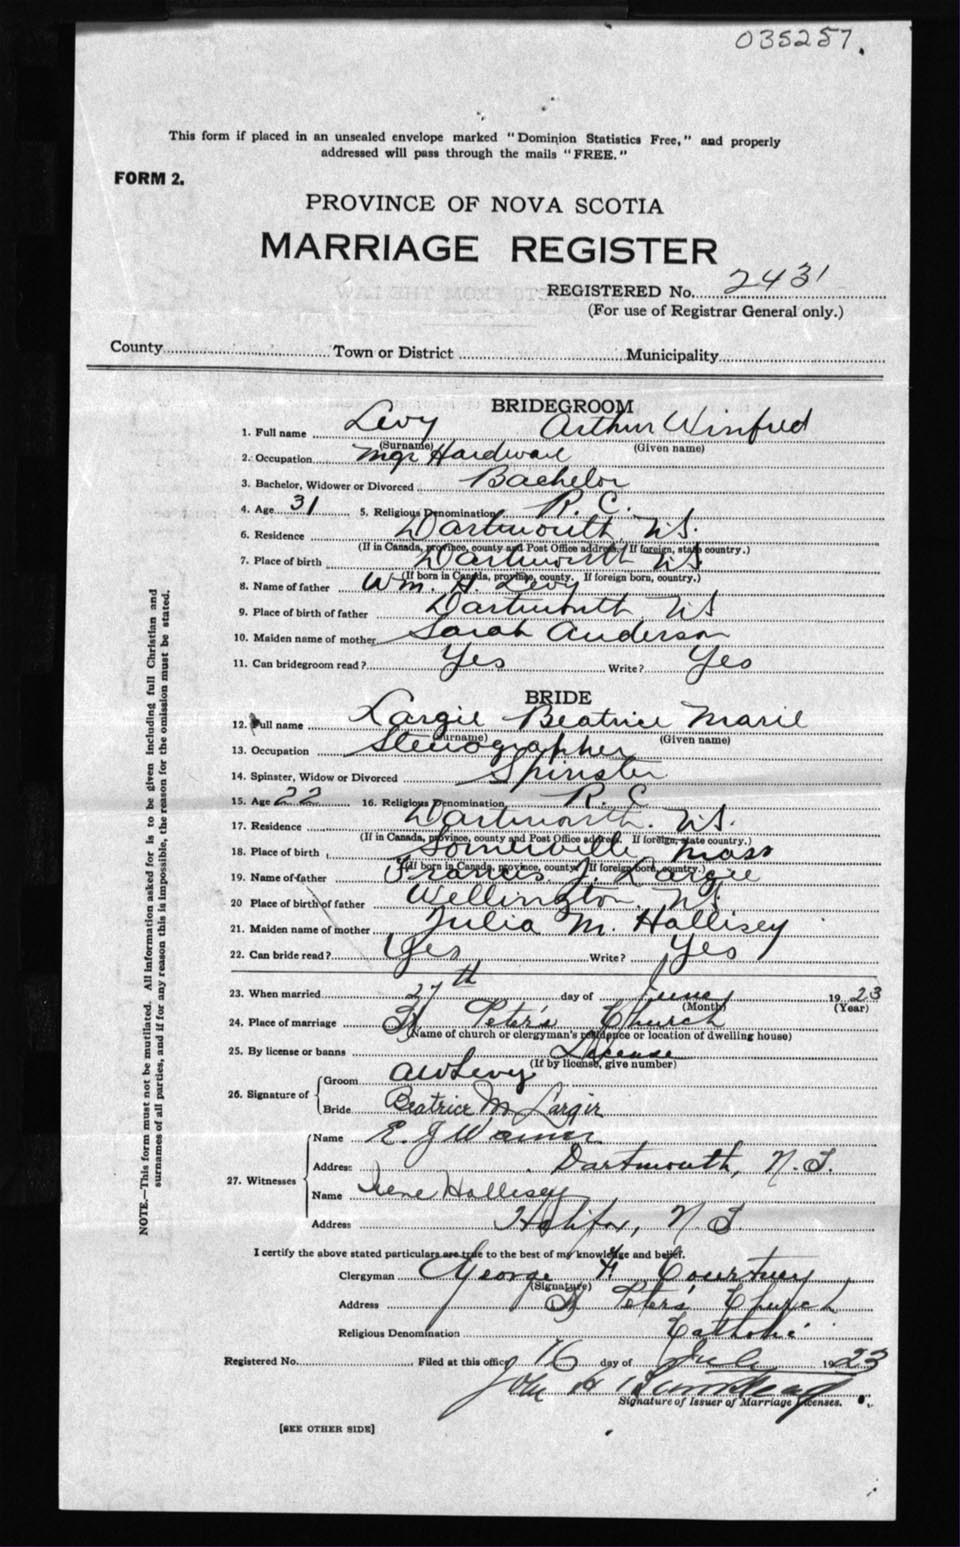 035257.
This form if placed in an unsealed envelope marked "Dominion Statistics Free," and properly
addressed will pass through the mails "FREE."
FORM 2.
PROVINCE OF NOVA SCOTIA
MARRIAGE REGISTER
REGISTERED No. 2431
(For use of Registrar General only.)
County Town or District Municipality
BRIDEGROOM
1. Full name Levy Arthur Winfred
(Surname) (Given name)
2. Occupation Mgr Hardware
3. Bachelor, Widower or Divorced Bachelor
4. Age 31 5. Religious Denomination R. C.
6. Residence Dartmouth NS.
(If in Canada, province, county and Post Office address. If foreign, state country.)
7. Place of birth Dartmouth NS
(If born in Canada, province, county. If foreign born, country.)
8. Name of father Wm. H. Levy
9. Place of birth of father Dartmouth NS
10. Maiden name of mother Sarah Anderson
11. Can bridegroom read? Yes Write? Yes
BRIDE
12. Full name Largie Beatrice Marie
(Surname) (Given name)
13. Occupation Stenographer
14. Spinster, Widow or Divorced Spinster
15. Age 22 16. Religious Denomination R. C
17. Residence Dartmouth. NS.
(If in Canada, province, county and Post Office address. If foreign, state country.)
18. Place of birth Somerville Mass
(If born in Canada, province, county. If foreign born, country.)
19. Name of father Francis J. Largie
20 Place of birth of father Wellington. NS
21. Maiden name of mother Julia M. Hallisey
22. Can bride read? Yes Write? Yes
23. When married 27th day of June 1923
(Month) (Year)
24. Place of marriage St Peter's Church
(Name of church or clergyman's residence or location of dwelling house)
25. By license or banns License
(If by license, give number)
26. Signature of Groom AW Levy
Bride Beatrice M Largie
27. Witnesses Name E. J
Address Dartmouth, N. S.
Name Irene Hallisey
Address Halifax, N S
I certify the above stated particulars are true to the best of my knowledge and belief.
Clergyman George H Courtney
(Signature)
Address St Peter's Church
Religious Denomination Catholic
Registered No. Filed at this office 16 day of July 1923
John H
Signature of Issuer of Marriage Licenses.
[SEE OTHER SIDE]
NOTE.—This form must not be mutilated. All information asked for is to be given including full Christian and
surnames of all parties, and if for any reason this is impossible, the reason for the omission must be stated.